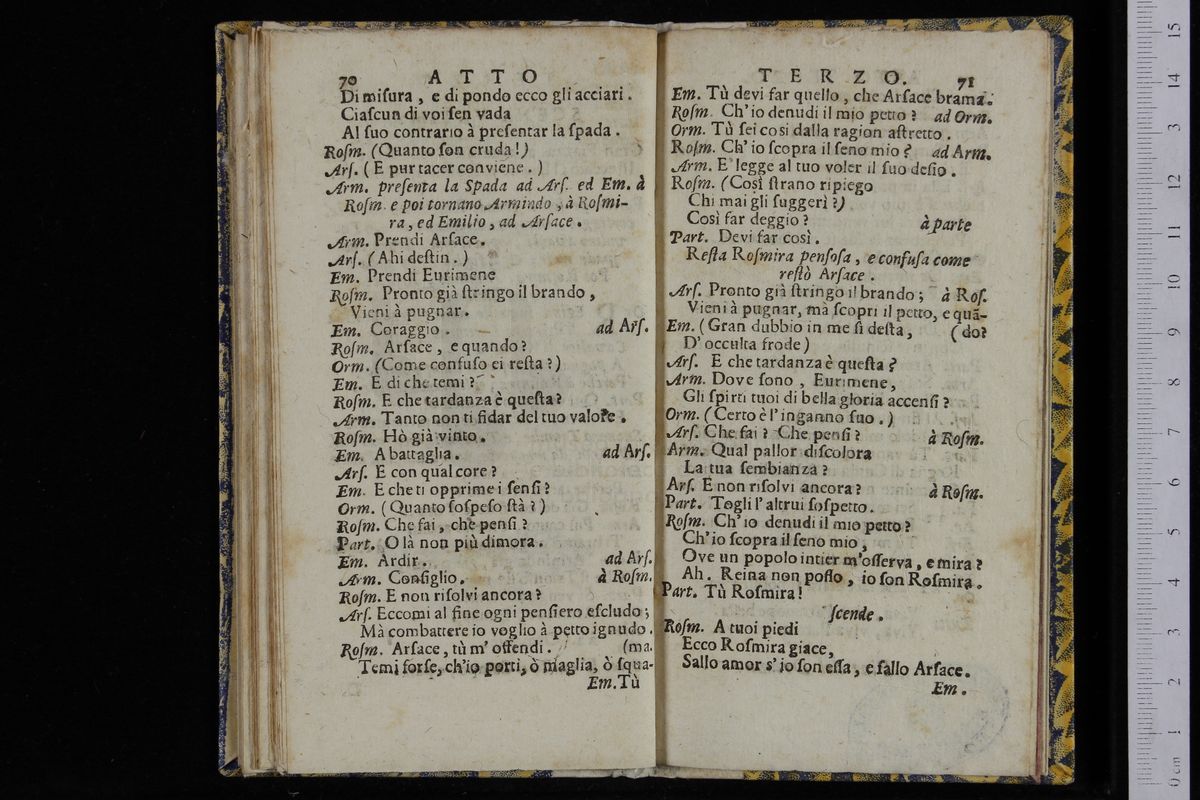 70 ATTO
Di miſura, e di pondo ecco gli acciari.
Ciaſcun di voi ſen vada
Al ſuo contrario à preſentar la ſpada.
Roſm. (Quanto ſon cruda!)
Arſ. (E pur tacer conviene.)
Arm. preſenta la Spada ad Arſ. ed Em. à
Roſm. e poi tornano Armindo, à Roſmi-
ra, ed Emilio, ad Arſace.
Arm. Prendi Arſace.
Arſ. (Ahi deſtin.)
Em. Prendi Eurimene
Roſm. Pronto già ſtringo il brando,
Vieni à pugnar.
Em. Coraggio. ad Arſ.
Roſm. Arſace, e quando?
Orm. (Come confuſo ei reſta?)
Em. E di che temi?
Roſm. E che tardanza è queſta?
Arm. Tanto non ti fidar del tuo valore.
Roſm. Hò già vinto.
Em. A battaglia. ad Arſ.
Arſ. E con qual core?
Em. E che ti opprime i ſenſi?
Orm. (Quanto ſoſpeſo ſtà?)
Roſm. Che fai, che penſi?
Part. O là non più dimora.
Em. Ardir. ad Arſ.
Arm. Conſiglio. à Roſm.
Roſm. E non riſolvi ancora?
Arſ. Eccomi al fine ogni penſiero eſcludo;
Mà combattere io voglio à petto ignudo.
Roſm. Arſace, tù m' offendi. (ma.
Temi forſe, ch'io porti, ò maglia, ò ſqua-
Em. Tù
TERZO. 71
Em. Tù devi far quello, che Arſace brama.
Roſm. Ch'io denudi il mio petto? ad Orm.
Orm. Tù ſei cosi dalla ragion aſtretto.
Roſm. Ch'io ſcopra il ſeno mio? ad Arm.
Arm. E' legge al tuo voler il ſuo deſio.
Roſm. (Così ſtrano ripiego
Chi mai gli ſuggerì?)
Così far deggio? à parte
Part. Devi far così.
Reſta Roſmira penſoſa, e confuſa come
reſtò Arſace.
Arſ. Pronto già ſtringo il brando; à Roſ.
Vieni à pugnar, mà ſcopri il petto, e quã-
Em. (Gran dubbio in me ſi deſta, (do?
D' occulta frode)
Arſ. E che tardanza è queſta?
Arm. Dove ſono, Eurimene,
Gli ſpirti tuoi di bella gloria accenſi?
Orm. (Certo è l'inganno ſuo.)
Arſ. Che fai? Che penſi? à Roſm.
Arm. Qual pallor diſcolora
La tua ſembianza?
Arſ. E non riſolvi ancora? à Roſm.
Part. Togli l'altrui ſoſpetto.
Roſm. Ch'io denudi il mio petto?
Ch'io ſcopra il ſeno mio,
Ove un popolo intier m'oſſerva, e mira?
Ah. Reina non poſſo, io ſon Roſmira.
Part. Tù Roſmira!
ſcende.
Roſm. A tuoi piedi
Ecco Roſmira giace,
Sallo amor s' io ſon eſſa, e ſallo Arſace.
Em.
0 cm 1 2 3 4 5 6 7 8 9 10 11 12 13 14 15